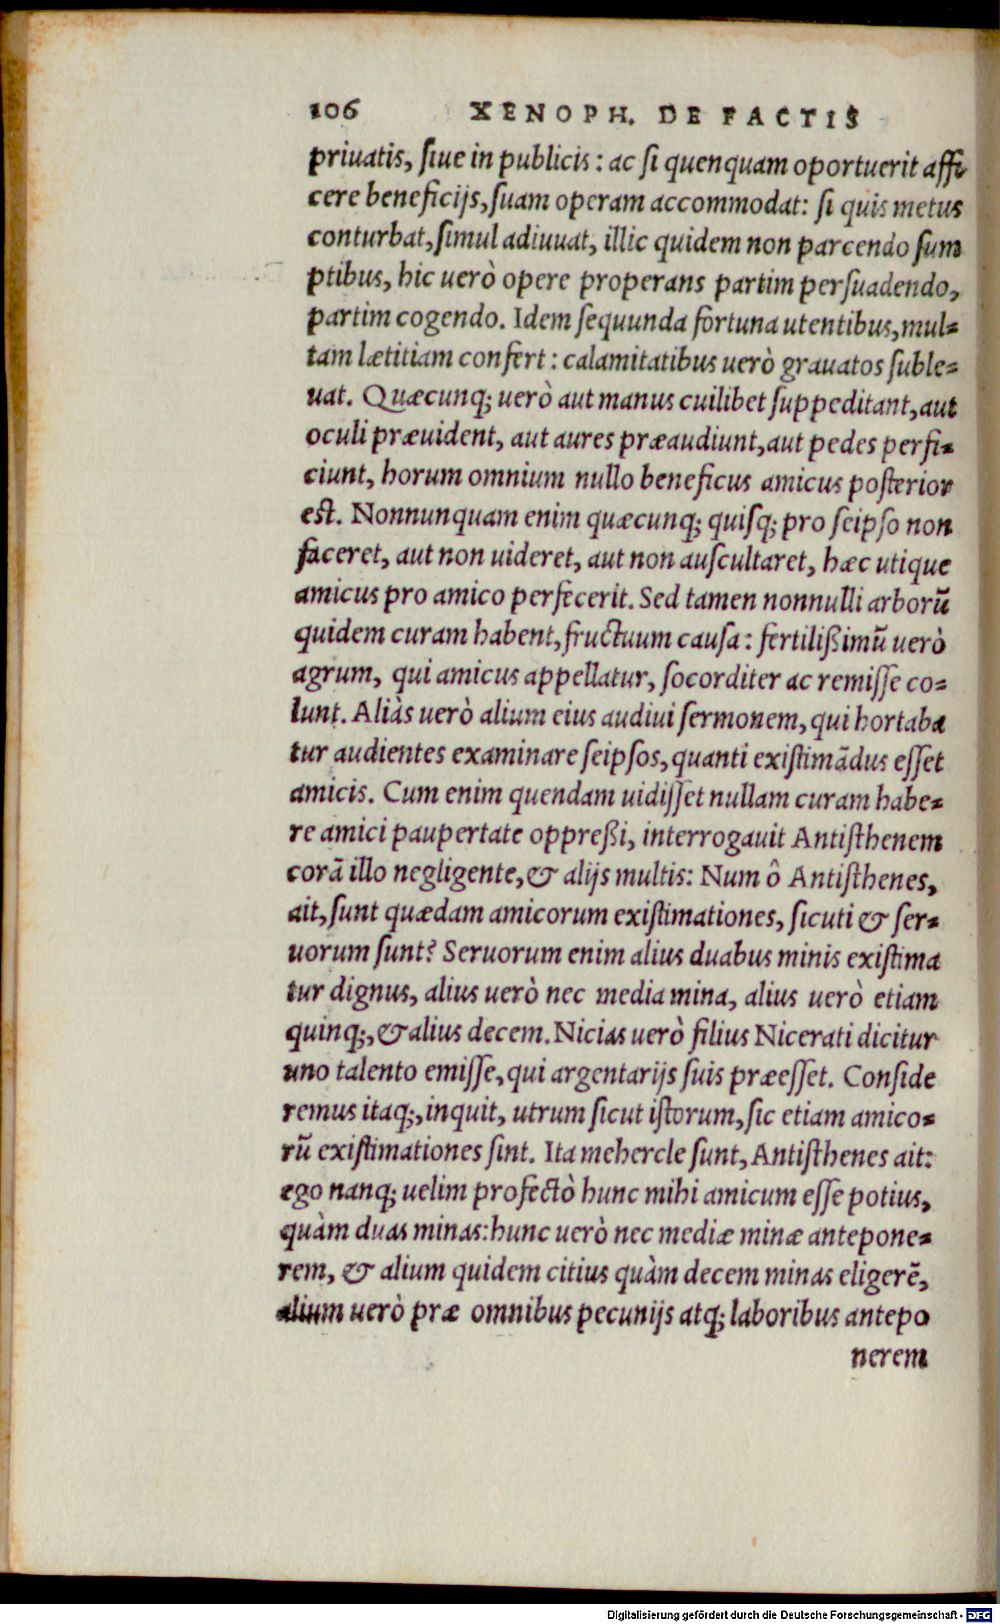 106 XENOPH. DE FACTIS
priuatis, siue in publicis : ac si quenquam oportuerit affi
cere beneficijs, suam operam accommodat: si quis metus
conturbat, simul adiuuat, illic quidem non parcendo sum
ptibus, hic uerò opere properans partim persuadendo,
partim cogendo. Idem sequunda fortuna utentibus, mul=
tam lætitiam confert : calamitatibus uerò grauatos suble=
uat. Quæcunq; uerò aut manus cuilibet suppeditant, aut
oculi præuident, aut aures præaudiunt, aut pedes perfi=
ciunt, horum omnium nullo beneficus amicus posterior
est. Nonnunquam enim quæcunq; quisq; pro seipso non
faceret, aut non uideret, aut non auscultaret, hæc utique
amicus pro amico perfecerit. Sed tamen nonnulli arborū
quidem curam habent, fructuum causa : fertilißimū uerò
agrum, qui amicus appellatur, socorditer ac remisse co=
lunt. Aliàs uerò alium eius audiui sermonem, qui hortaba
tur audientes examinare seipsos, quanti existimādus esset
amicis. Cum enim quendam uidisset nullam curam habe=
re amici paupertate oppreßi, interrogauit Antisthenem
corā illo negligente, & alijs multis: Num ô Antisthenes,
ait, sunt quædam amicorum existimationes, sicuti & ser=
uorum sunt? Seruorum enim alius duabus minis existima
tur dignus, alius uerò nec media mina, alius uerò etiam
quinq;, & alius decem. Nicias uerò filius Nicerati dicitur
uno talento emisse, qui argentarijs suis præesset. Conside
remus itaq;, inquit, utrum sicut istorum, sic etiam amico=
rū existimationes sint. Ita mehercle sunt, Antisthenes ait:
ego nanq; uelim profectò hunc mihi amicum esse potius,
quàm duas minas: hunc uerò nec mediæ minæ antepone=
rem, & alium quidem citius quàm decem minas eligerē,
alium uerò præ omnibus pecunijs atq; laboribus antepo
nerem
Digitalisierung gefördert durch die Deutsche Forschungsgemeinschaft - DFG